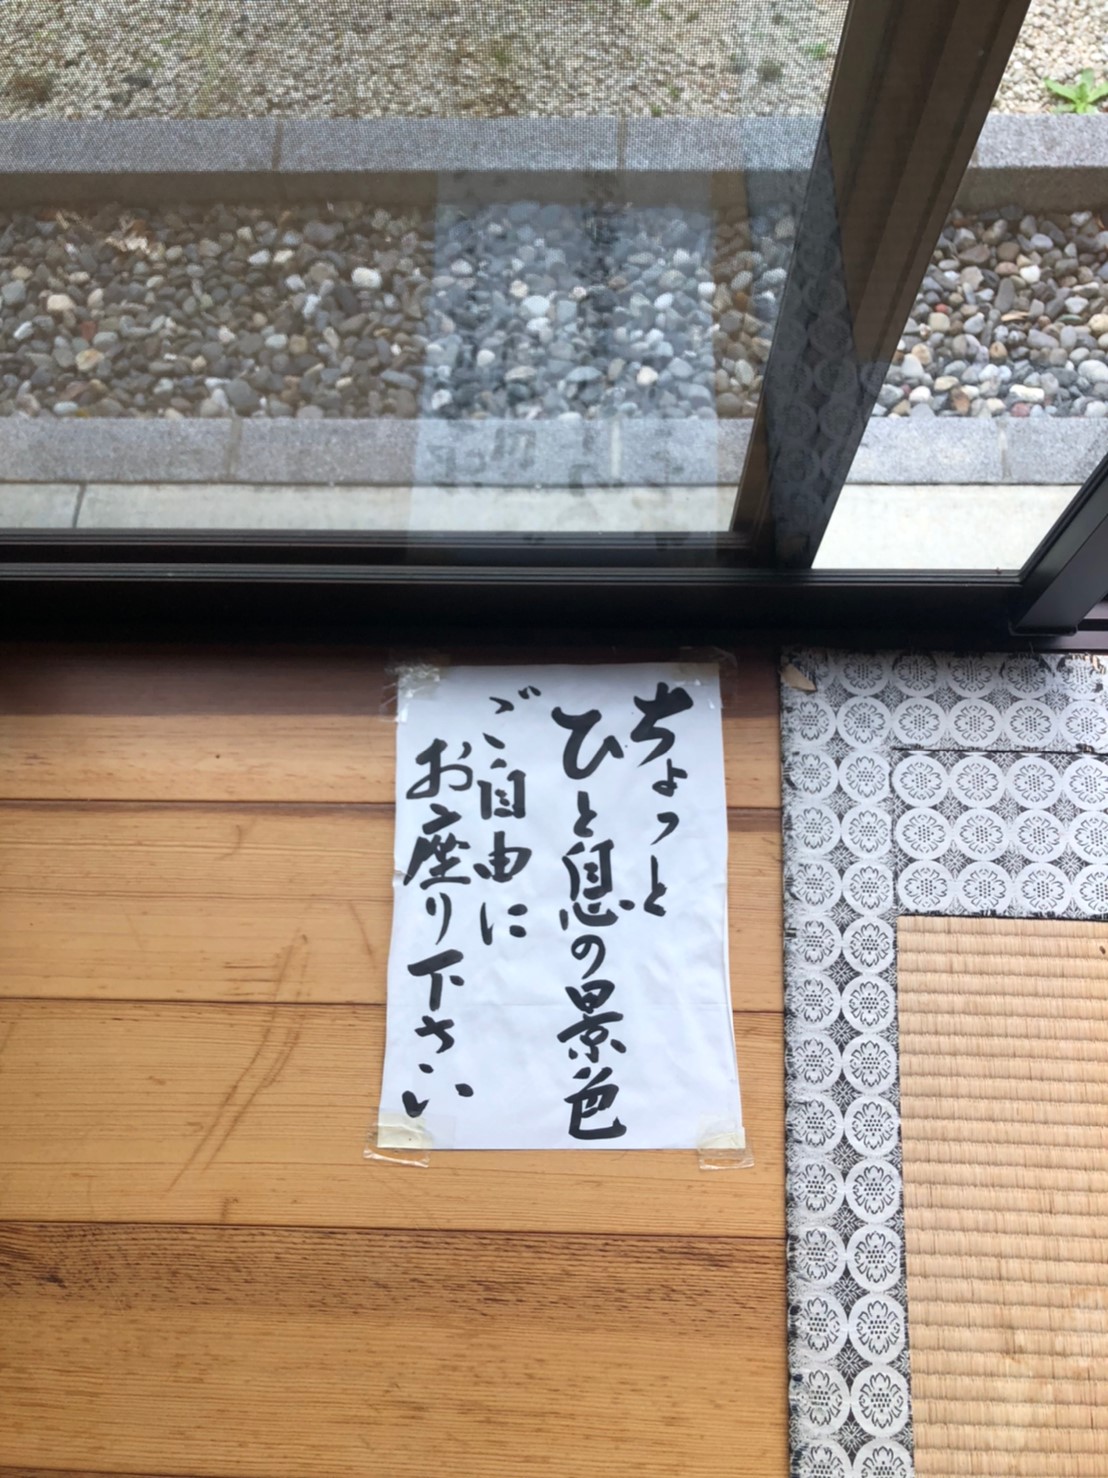 ちょっと
ひと息の景色
ご自由に
お座り下さい